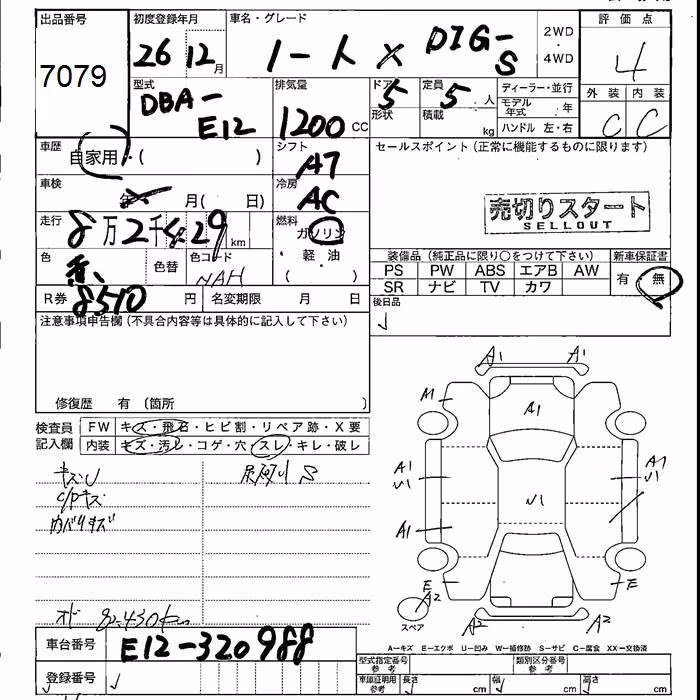 出品番号
7079
初度登録年月
26 12月
車名・グレード
ノート X DIG-S
2WD
・
4WD
評価点
4
外装 内装
C C
型式
DBA-E12
排気量
1200 CC
ドア
5
形状
定員
5 人
積載
kg
ディーラー・並行
モデル年式 年
ハンドル 左・右
車歴
自家用・( )
シフト
A7
車検
年 月( 日)
冷房
AC
走行
8万2千429km
燃料
ガソリン
・軽・油
( )
色
色替
色コード
NAH
R券 8510 円
名変期限 月 日
セールスポイント(正常に機能するものに限ります)
売切りスタート
SELLOUT
装備品(純正品に限り○をつけて下さい)
PS PW ABS エアB AW
SR ナビ TV カワ
新車保証書
有 無
後日品
注意事項申告欄(不具合内容等は具体的に記入して下さい)
修復歴 有(箇所 )
検査員記入欄
FW キズ・飛石・ヒビ割・リペア跡・X要
内装 キズ・汚レ・コゲ・穴・スレ・キレ・破レ
キズU
C/Pキズ
内バリキズ
S
オド 82,430km
A1 A1
M A1
A1 U1 U1 A1 U1
A1
E E
A2 A2 A2
スペア
A−キズ E−エクボ U−凹み W−補修跡 S−サビ C−腐食 XX−交換済
車台番号 E12-320988
登録番号
型式指定番号参考
類別区分番号参考
車庫証明用参考
長さ cm 幅 cm 高さ cm